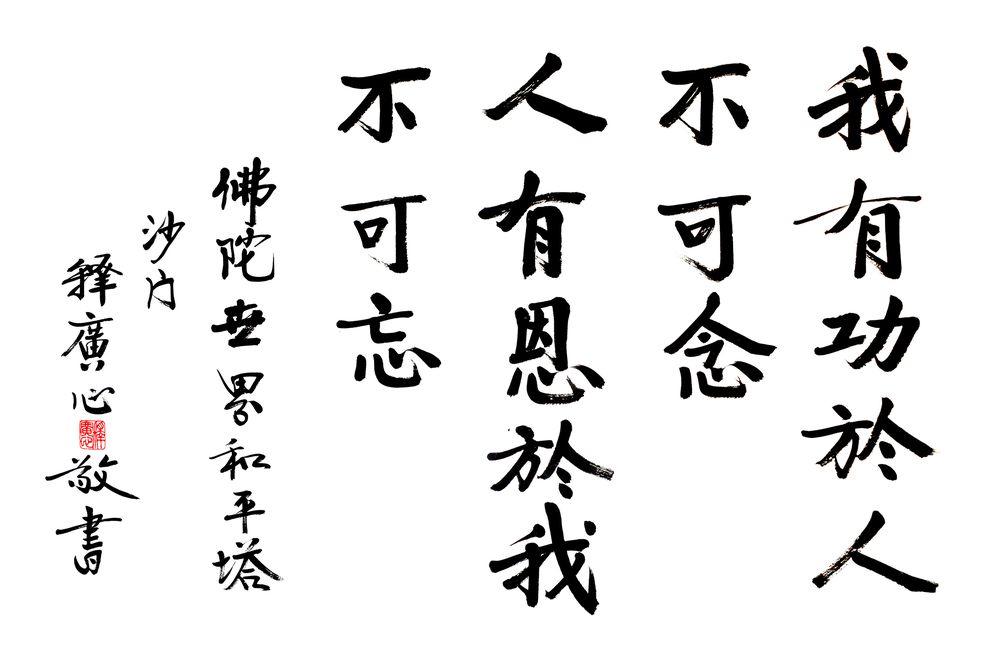 我有功於人
不可念
人有恩於我
不可忘
佛陀世界和平塔
沙门
釋廣心敬書